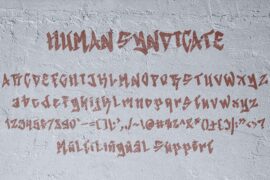 HUMAN SYNDICATE
ABCDEFGHIJKLMNOPQRSTUVWXYZ
abcdefghijklmnopqrstuvwxyz
Multilingual Support